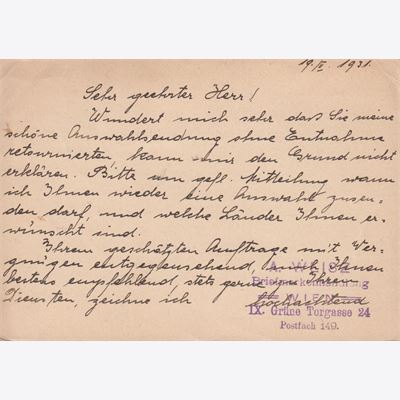 19./IX. 1931.
Sehr geehrter Herr!
Wundert mich sehr daß Sie meine
schöne Auswahlsendung ohne Entnahme
retournierten, kann mir den Grund nicht
erklären. Bitte um gefl. Mitteilung wann
ich Ihnen wieder eine Auswahl zusen-
den darf, und welche Länder Ihnen er-
wünscht sind.
Ihren geschätzten Aufträge mit Ver-
gnügen entgegensehend, mich Ihnen
bestens empfehlend, stets gerne zu Ihren
Diensten, zeichne ich Hochachtend
A. WEISZ
Briefmarkenhandlung
WIEN
IX. Grüne Torgasse 24
Postfach 149.